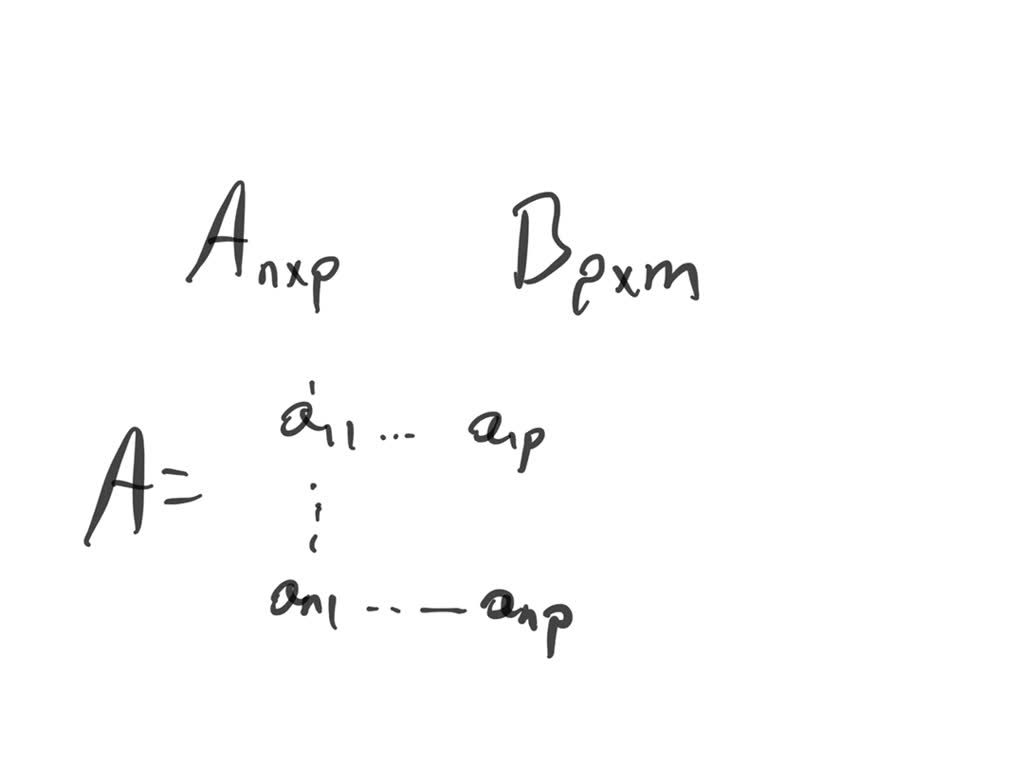 Anxp Bpxm
a11 ... a1p
A=
an1 ..-— anp